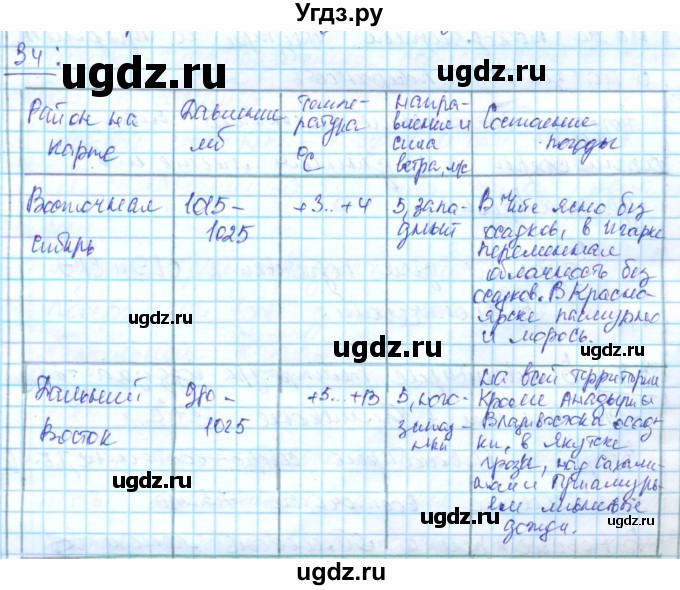 Угдз.ру
34.
ugdz.ru
ugdz.ru
Район на карте
Давление мб
Температура °С
Направление и сила ветра, м/с
Состояние погоды
ugdz.ru
ugdz.ru
Восточная Сибирь
1015 – 1025
+3...+4
5, западный
В Чите ясно без
осадков, в Игарке
переменная
облачность без
осадков. В Красно-
ярске пасмурно
и морось.
ugdz.ru
ugdz.ru
ugdz.ru
Дальний Восток
– 1025
+5...+13
5, юго-западный
на всей территории
кроме Анадыры
Владивостока осад-
ки, в Якутске
грозы, над Сахали-
ном и Приамурь-
ем ливневые
дожди.
ugdz.ru
ugdz.ru
ugdz.ru
ugdz.ru
ugdz.ru